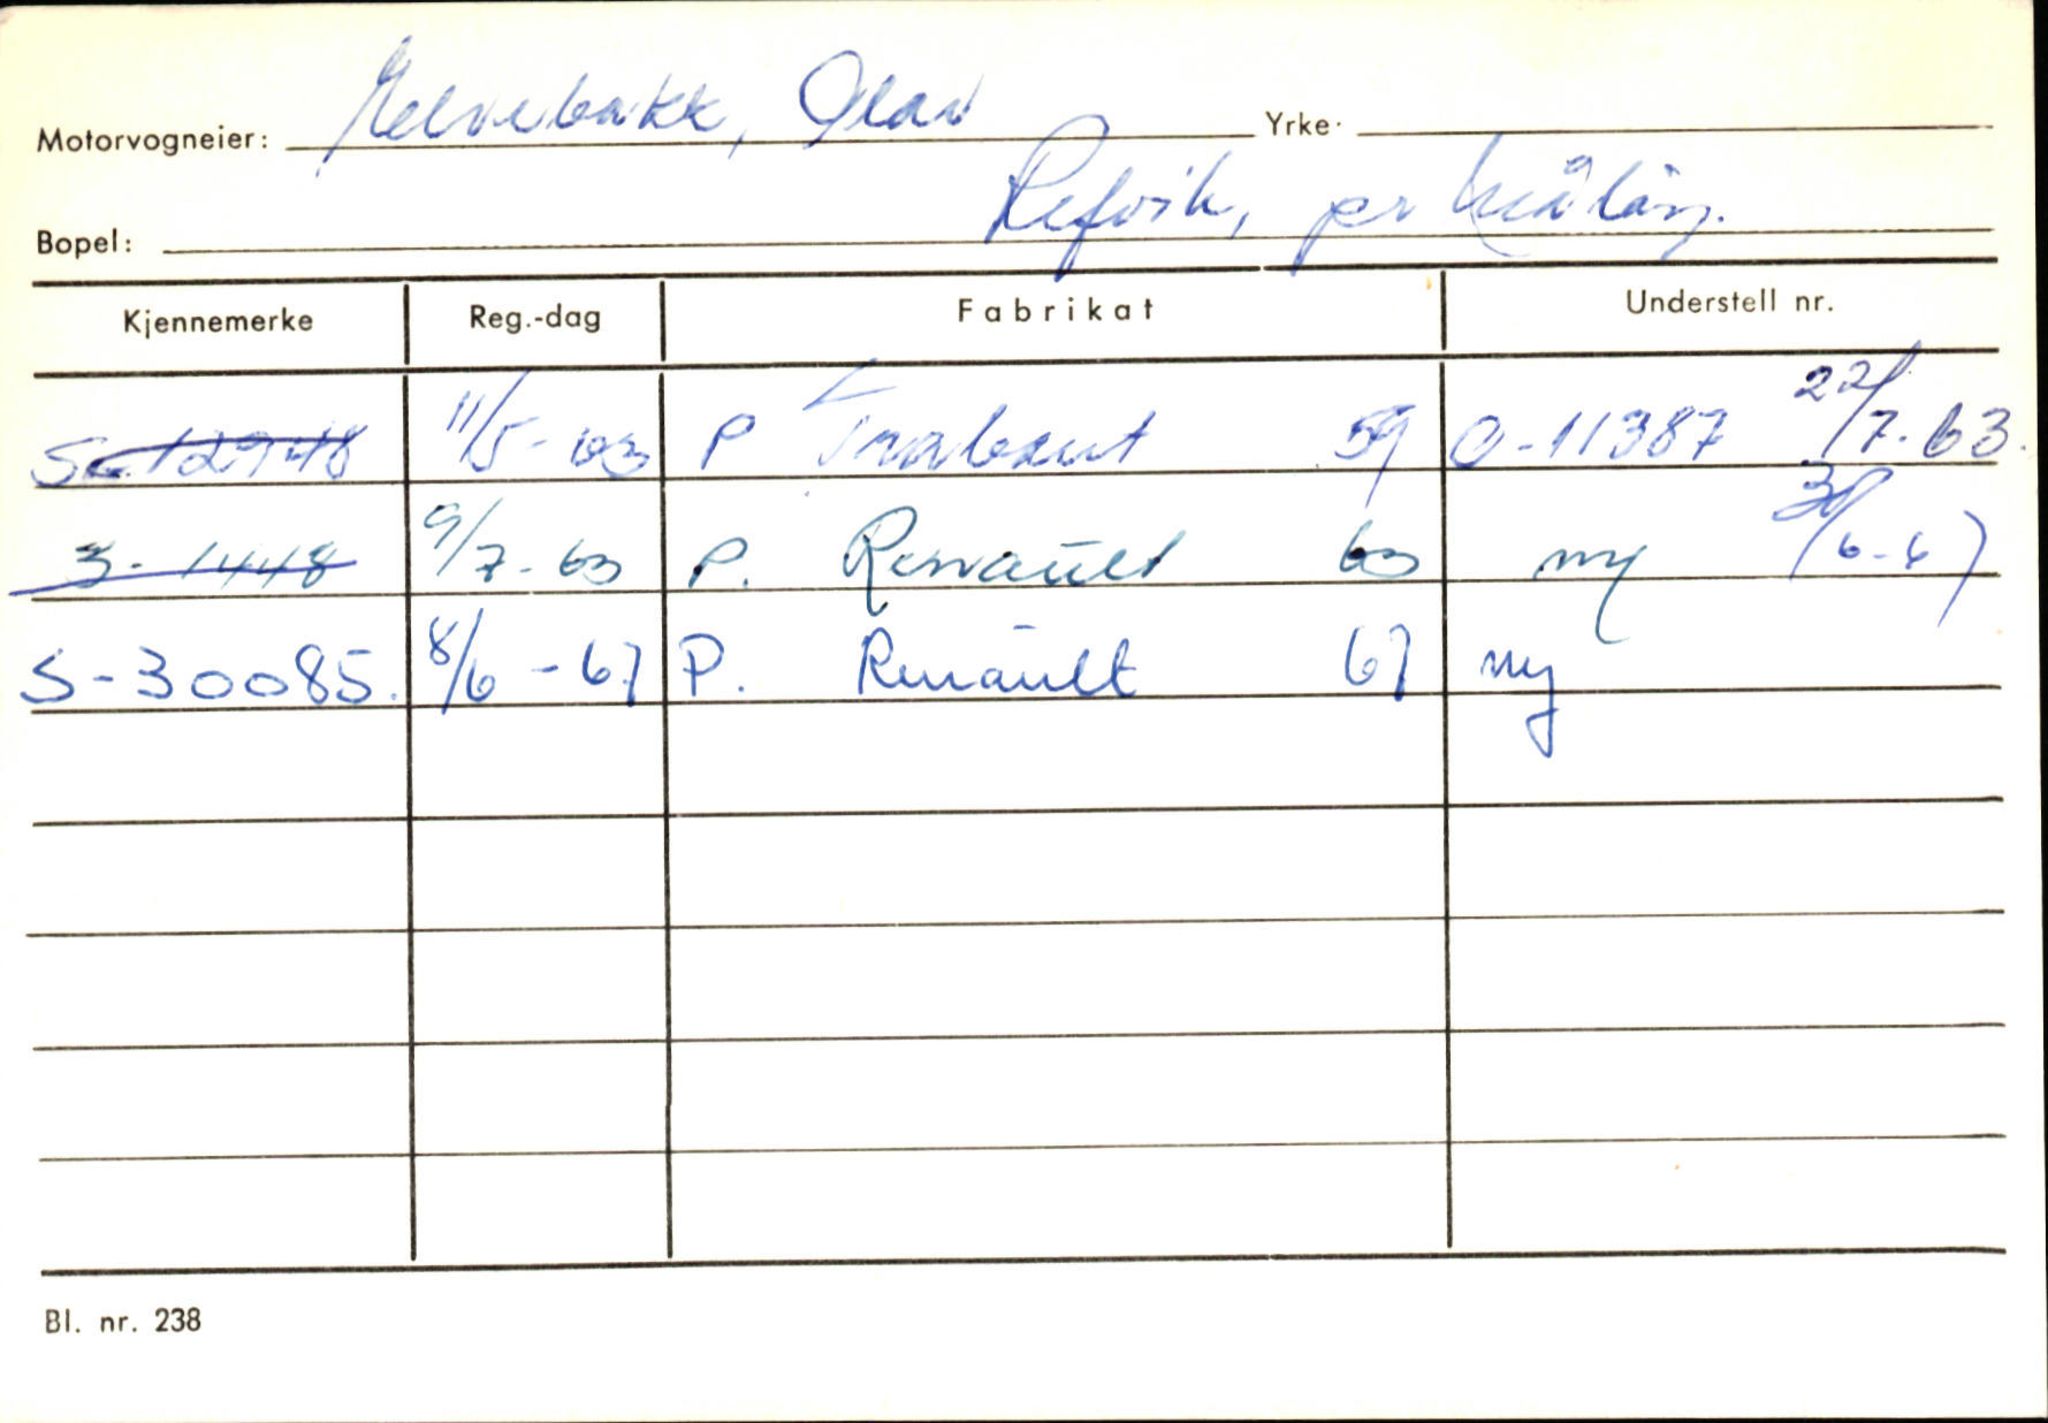 Motorvogneier: Melvebakk, Olav Yrke·
Bopel: Refvik, per Måløy.
Kjennemerke Reg.-dag Fabrikat Understell nr.
S-12948 11/5-63 P Trabant 59 0-11387 22/7.63.
S-1448 9/7-63 P. Renault 63 ny 30/6-67
S-30085. 8/6-67 P. Renault 67 ny
Bl. nr. 238